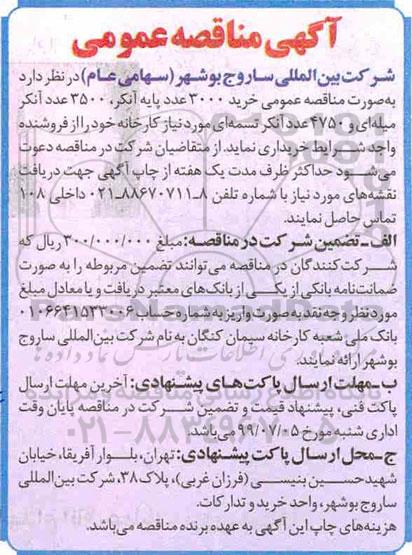 آگهی مناقصه عمومی
شرکت بین‌المللی ساروج بوشهر (سهامی عام) در نظر دارد
به‌صورت مناقصه عمومی خرید ۳۰۰۰ عدد پایه آنکر، ۳۵۰۰ عدد آنکر
میله‌ای و ۴۷۵۰ عدد آنکر تسمه‌ای مورد نیاز کارخانه خود را از فروشنده
واجد شرایط خریداری نماید. از متقاضیان شرکت در مناقصه دعوت
می‌شود حداکثر ظرف مدت یک هفته از چاپ آگهی جهت دریافت
نقشه‌های مورد نیاز با شماره تلفن ۸ـ۸۸۶۷۰۷۱۱ـ۰۲۱ داخلی ۱۰۸
تماس حاصل نمایند.
الف ـ تضمین شرکت در مناقصه: مبلغ ۳۰۰/۰۰۰/۰۰۰ ریال که
شرکت کنندگان در مناقصه می‌توانند تضمین مربوطه را به صورت
ضمانت‌نامه بانکی از یکی از بانک‌های معتبر دریافت و یا معادل مبلغ
مورد نظر وجه نقد به صورت واریز به شماره حساب ۰۱۰۶۶۴۱۵۳۳۰۰۶
بانک ملی شعبه کارخانه سیمان کنگان به نام شرکت بین‌المللی ساروج
بوشهر ارائه نمایند.
ب ـ مهلت ارسال پاکت‌های پیشنهادی: آخرین مهلت ارسال
پاکت فنی، پیشنهاد قیمت و تضمین شرکت در مناقصه پایان وقت
اداری شنبه مورخ ۹۹/۰۷/۰۵ می‌باشد.
ج ـ محل ارسال پاکت پیشنهادی: تهران، بلوار آفریقا، خیابان
شهید حسین بنیسی (فرزان غربی)، پلاک ۳۸، شرکت بین‌المللی
ساروج بوشهر، واحد خرید و تدارکات.
هزینه‌های چاپ این آگهی به عهده برنده مناقصه می‌باشد.